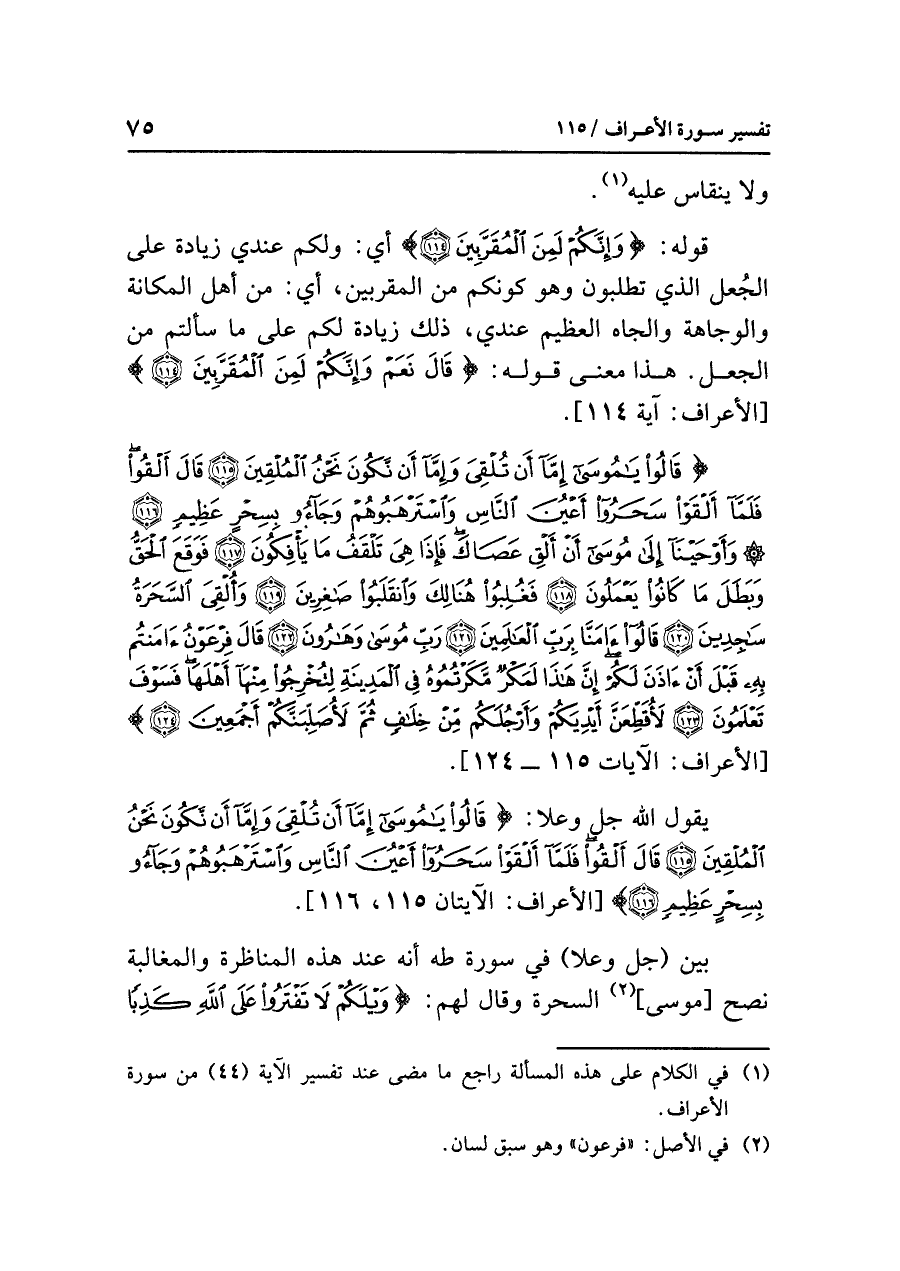 تفسير سورة الأعراف / ١١٥
٧٥
ولا ينقاس عليه(١).
قوله: ﴿وَإِنَّكُمْ لَمِنَ ٱلْمُقَرَّبِينَ ١١٤﴾ أي: ولكم عندي زيادة على
الجُعل الذي تطلبون وهو كونكم من المقربين، أي: من أهل المكانة
والوجاهة والجاه العظيم عندي، ذلك زيادة لكم على ما سألتم من
الجعل. هذا معنى قوله: ﴿قَالَ نَعَمْ وَإِنَّكُمْ لَمِنَ ٱلْمُقَرَّبِينَ ١١٤﴾
[الأعراف: آية ١١٤].
﴿قَالُوا۟ يَـٰمُوسَىٰٓ إِمَّآ أَن تُلْقِىَ وَإِمَّآ أَن نَّكُونَ نَحْنُ ٱلْمُلْقِينَ ١١٥ قَالَ أَلْقُوا۟ۖ
فَلَمَّآ أَلْقَوْا۟ سَحَرُوٓا۟ أَعْيُنَ ٱلنَّاسِ وَٱسْتَرْهَبُوهُمْ وَجَآءُو بِسِحْرٍ عَظِيمٍ ١١٦
۞ وَأَوْحَيْنَآ إِلَىٰ مُوسَىٰٓ أَنْ أَلْقِ عَصَاكَۖ فَإِذَا هِىَ تَلْقَفُ مَا يَأْفِكُونَ ١١٧ فَوَقَعَ ٱلْحَقُّ
وَبَطَلَ مَا كَانُوا۟ يَعْمَلُونَ ١١٨ فَغُلِبُوا۟ هُنَالِكَ وَٱنقَلَبُوا۟ صَـٰغِرِينَ ١١٩ وَأُلْقِىَ ٱلسَّحَرَةُ
سَـٰجِدِينَ ١٢٠ قَالُوٓا۟ ءَامَنَّا بِرَبِّ ٱلْعَـٰلَمِينَ ١٢١ رَبِّ مُوسَىٰ وَهَـٰرُونَ ١٢٢ قَالَ فِرْعَوْنُ ءَامَنتُم
بِهِۦ قَبْلَ أَنْ ءَاذَنَ لَكُمْۖ إِنَّ هَـٰذَا لَمَكْرٌ مَّكَرْتُمُوهُ فِى ٱلْمَدِينَةِ لِتُخْرِجُوا۟ مِنْهَآ أَهْلَهَاۖ فَسَوْفَ
تَعْلَمُونَ ١٢٣ لَأُقَطِّعَنَّ أَيْدِيَكُمْ وَأَرْجُلَكُم مِّنْ خِلَـٰفٍ ثُمَّ لَأُصَلِّبَنَّكُمْ أَجْمَعِينَ ١٢٤﴾
[الأعراف: الآيات ١١٥ ـ ١٢٤].
يقول الله جل وعلا: ﴿قَالُوا۟ يَـٰمُوسَىٰٓ إِمَّآ أَن تُلْقِىَ وَإِمَّآ أَن نَّكُونَ نَحْنُ
ٱلْمُلْقِينَ ١١٥ قَالَ أَلْقُوا۟ۖ فَلَمَّآ أَلْقَوْا۟ سَحَرُوٓا۟ أَعْيُنَ ٱلنَّاسِ وَٱسْتَرْهَبُوهُمْ وَجَآءُو
بِسِحْرٍ عَظِيمٍ ١١٦﴾ [الأعراف: الآيتان ١١٥، ١١٦].
بين (جل وعلا) في سورة طه أنه عند هذه المناظرة والمغالبة
نصح [موسى](٢) السحرة وقال لهم: ﴿وَيْلَكُمْ لَا تَفْتَرُوا۟ عَلَى ٱللَّهِ كَذِبًا
(١) في الكلام على هذه المسألة راجع ما مضى عند تفسير الآية (٤٤) من سورة
الأعراف.
(٢) في الأصل: «فرعون» وهو سبق لسان.